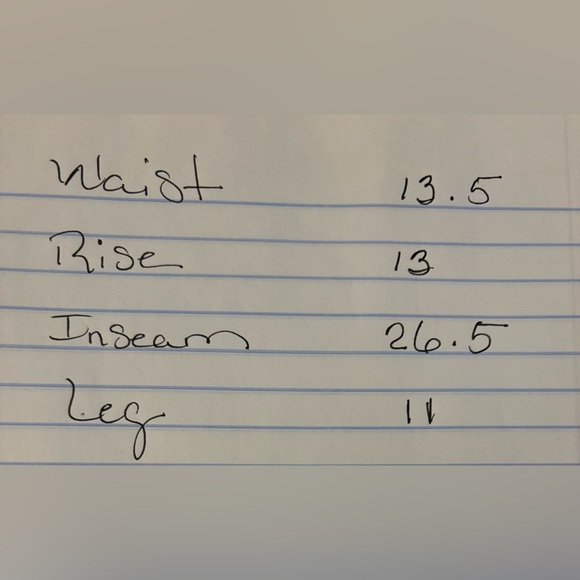 Waist 13.5
Rise 13
Inseam 26.5
Leg 11